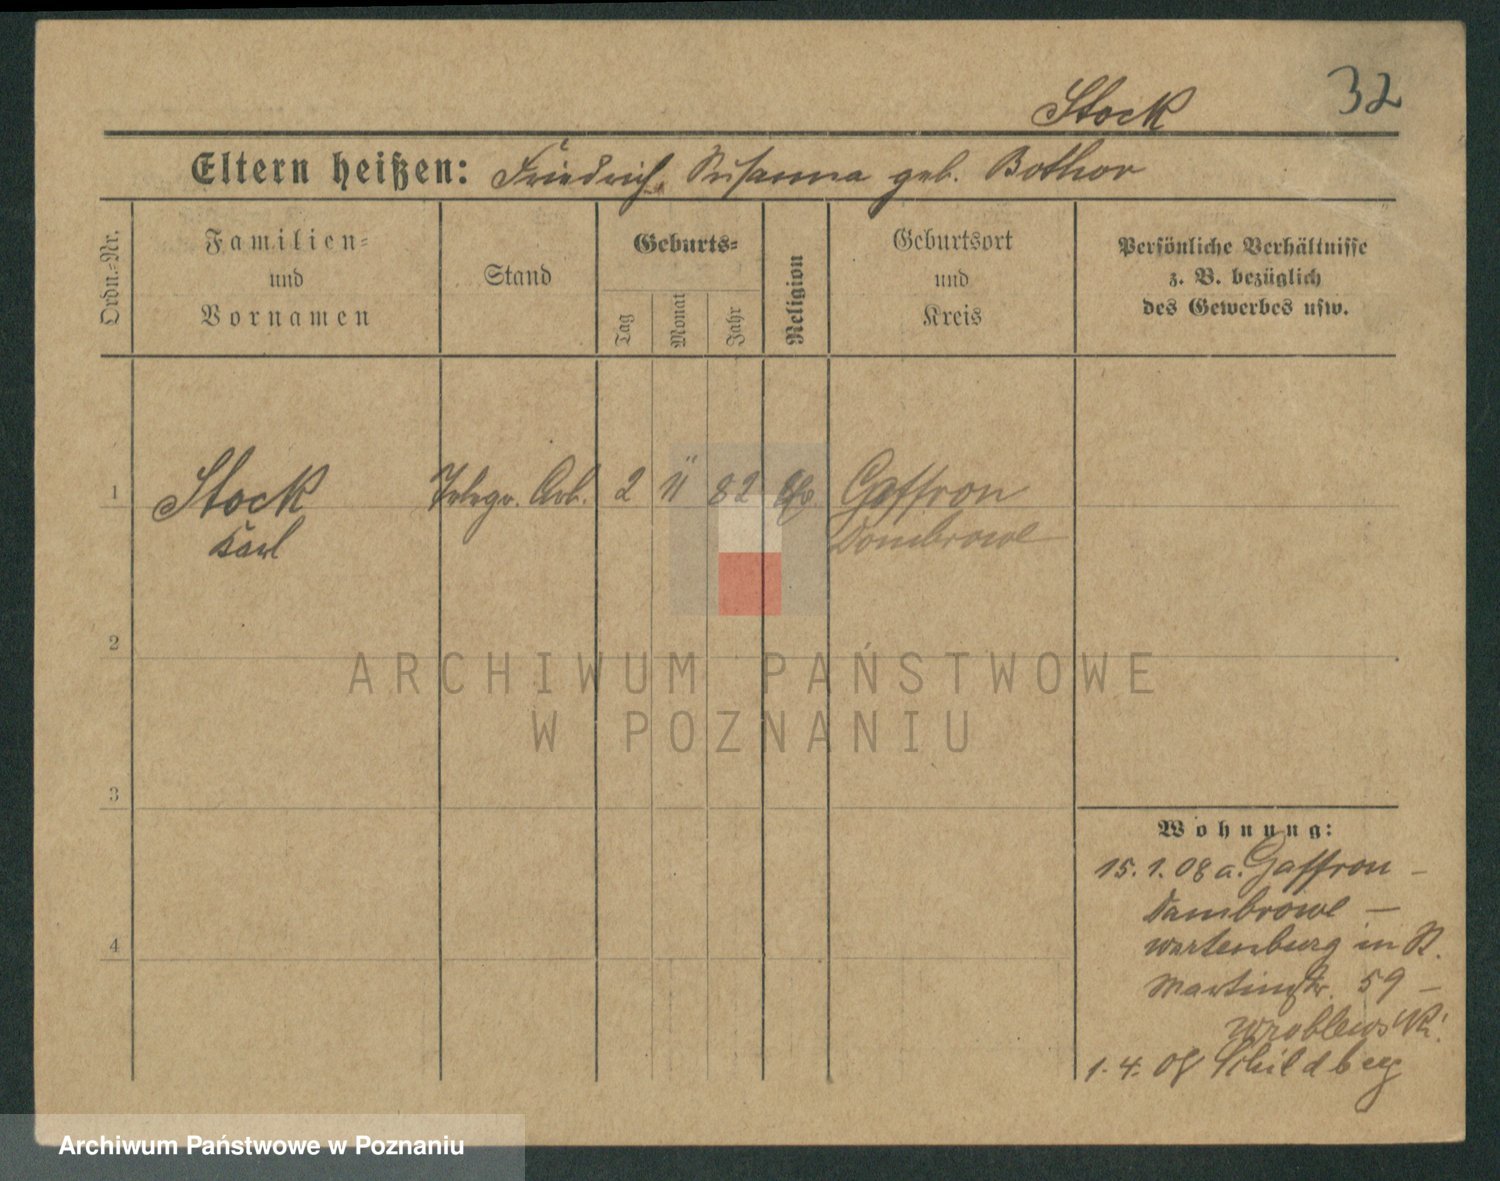 32
Stock
Eltern heißen: Friedrich, Susanna geb. Bothor
Ordn.-Nr.
Familien-
und
Vornamen
Stand
Geburts-
Tag
Monat
Jahr
Religion
Geburtsort
und
Kreis
Persönliche Verhältnisse
z. B. bezüglich
des Gewerbes usw.
1 Stock Telegr. Arb. 2 11 82 Gaffron
Karl Dombrowe
2
3
4
ARCHIWUM PAŃSTWOWE
W POZNANIU
Wohnung:
15.1.08 a. Gaffron –
Dambrowe –
Wartenburg in
Martinstr. 59 –
Wroblewski.
1.4.08 Schildberg
Archiwum Państwowe w Poznaniu